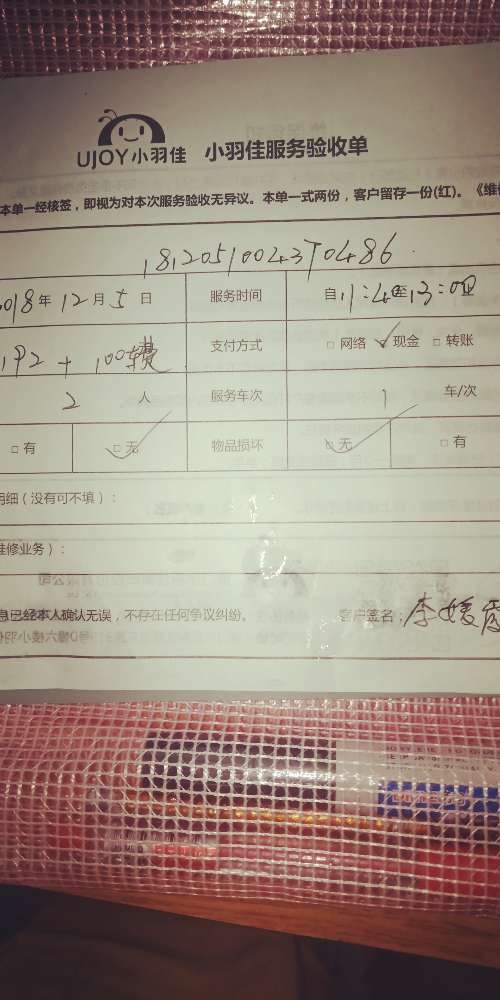 UJOY小羽佳 小羽佳服务验收单
本单一经核签，即视为对本次服务验收无异议。本单一式两份，客户留存一份(红)。《维修
18120510043T0486
2018年12月5日 服务时间 自11:40至13:00
192+100 支付方式 □网络 ✓现金 □转账
2人 服务车次 1车/次
□有 □无 ✓ 物品损坏 □无 ✓ □有
明细（没有可不填）：
维修业务）：
息已经本人确认无误，不存在任何争议纠纷。 客户签名：李媛